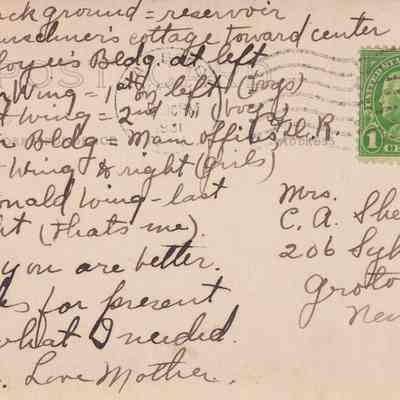 ack ground = reservoir
unschner's cottage toward center
loyee's Bldg. at left
Wing = 1st on left (boys)
Wing = 2nd " " (boys)
Bldg = Main offices
Wing & right (girls)
onald Wing - last
ht (thats me).
you are better.
es for present
what I needed.
Love Mother.
ADDRESS
UNITED STATES
1
Mrs.
C. A. She
206 Sy
Groto
New